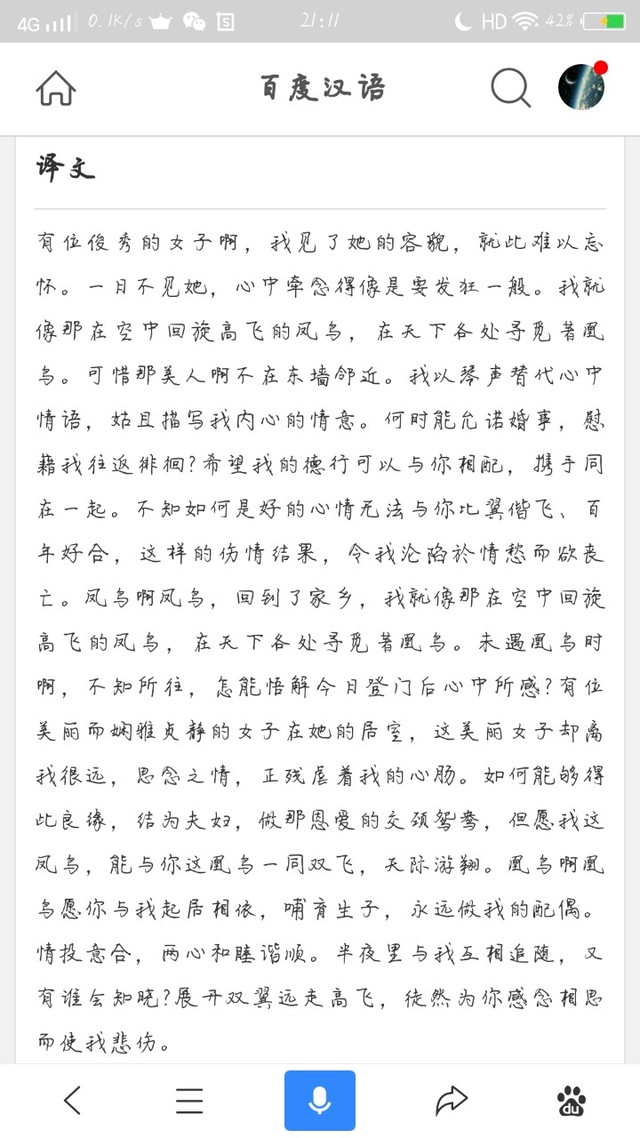 4G 0.1K/s 21:11 HD 42%
百度汉语
译文
有位俊秀的女子啊，我见了她的容貌，就此难以忘
怀。一日不见她，心中牵念得像是要发狂一般。我就
像那在空中回旋高飞的凤鸟，在天下各处寻觅着凰
鸟。可惜那美人啊不在东墙邻近。我以琴声替代心中
情语，姑且描写我内心的情意。何时能允诺婚事，慰
藉我往返徘徊?希望我的德行可以与你相配，携手同
在一起。不知如何是好的心情无法与你比翼偕飞、百
年好合，这样的伤情结果，令我沦陷於情愁而欲丧
亡。凤鸟啊凤鸟，回到了家乡，我就像那在空中回旋
高飞的凤鸟，在天下各处寻觅着凰鸟。未遇凰鸟时
啊，不知所往，怎能悟解今日登门后心中所感?有位
美丽而娴雅贞静的女子在她的居室，这美丽女子却离
我很远，思念之情，正残虐着我的心肠。如何能够得
此良缘，结为夫妇，做那恩爱的交颈鸳鸯，但愿我这
凤鸟，能与你这凰鸟一同双飞，天际游翔。凰鸟啊凰
鸟愿你与我起居相依，哺育生子，永远做我的配偶。
情投意合，两心和睦谐顺。半夜里与我互相追随，又
有谁会知晓?展开双翼远走高飞，徒然为你感念相思
而使我悲伤。
du